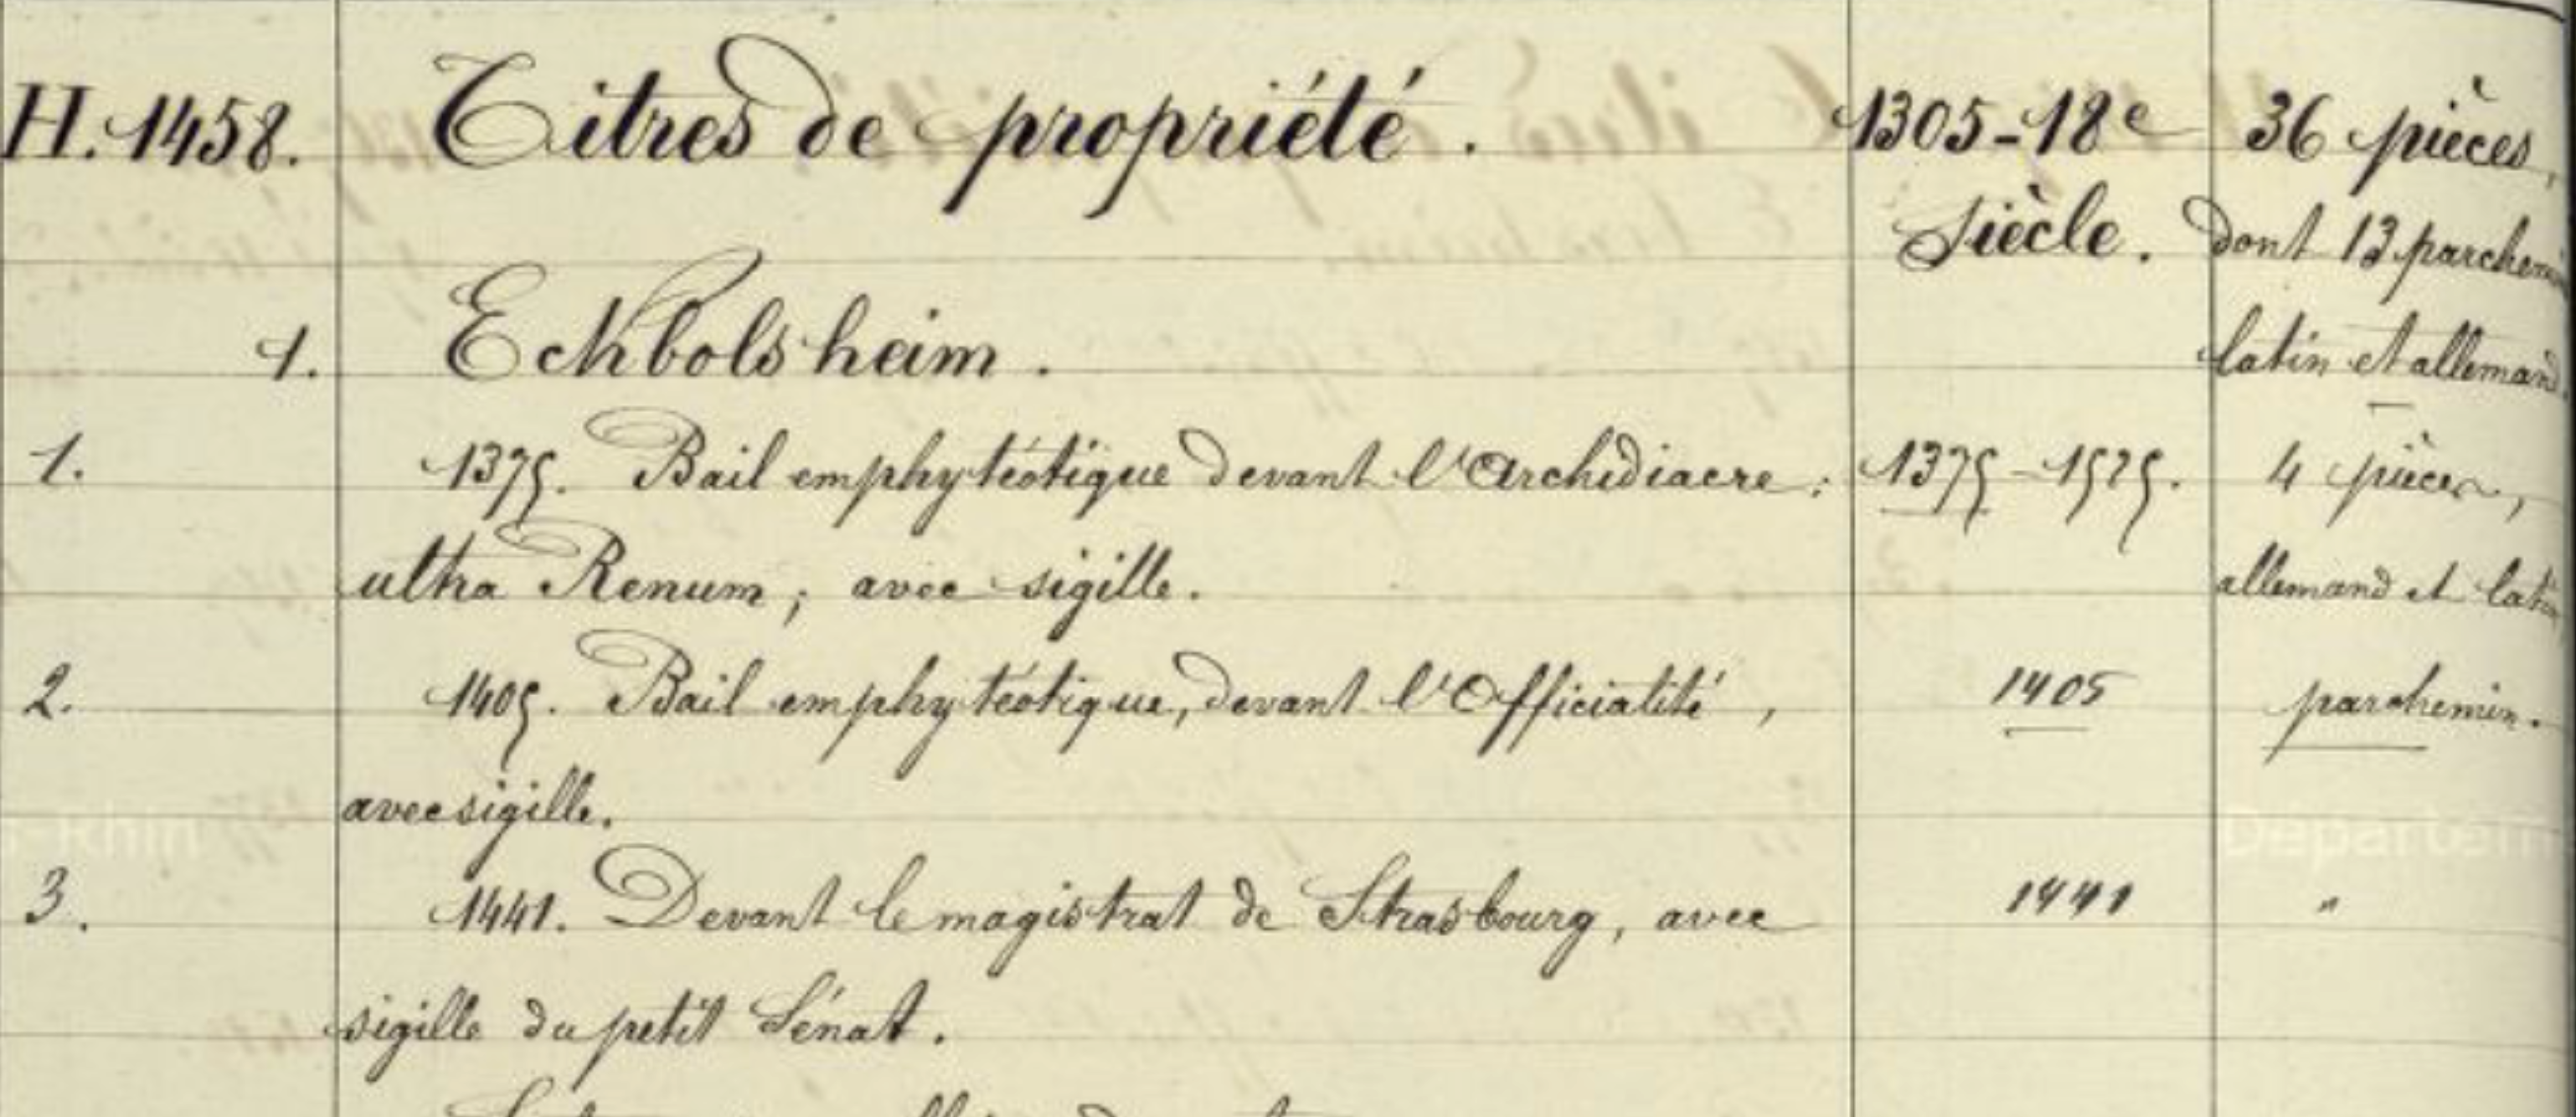 H. 1458. Titres de propriété. 1305-18e 36 pièces,
siècle. dont 13 parchemins
1. Eckbolsheim. latin et allemand.
1. 1375. Bail emphytéotique devant l'Archidiacre: 1375-1525. 4 pièces,
ultra Renum; avec sigille. allemand et latin
2. 1405. Bail emphytéotique, devant l'Officialité, 1405 parchemin.
avec sigille.
3. 1441. Devant le magistrat de Strasbourg, avec 1441 "
sigille du petit Sénat.